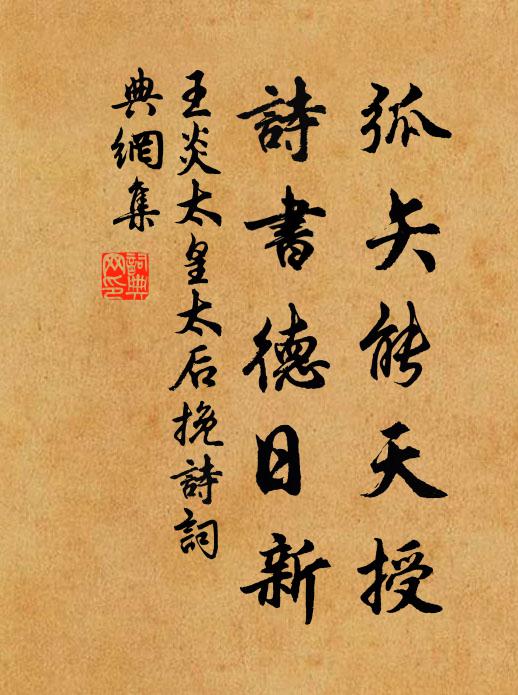 弧矢能天授
詩書德日新
王炎太皇太后挽詩詞
典網集
詞典網印